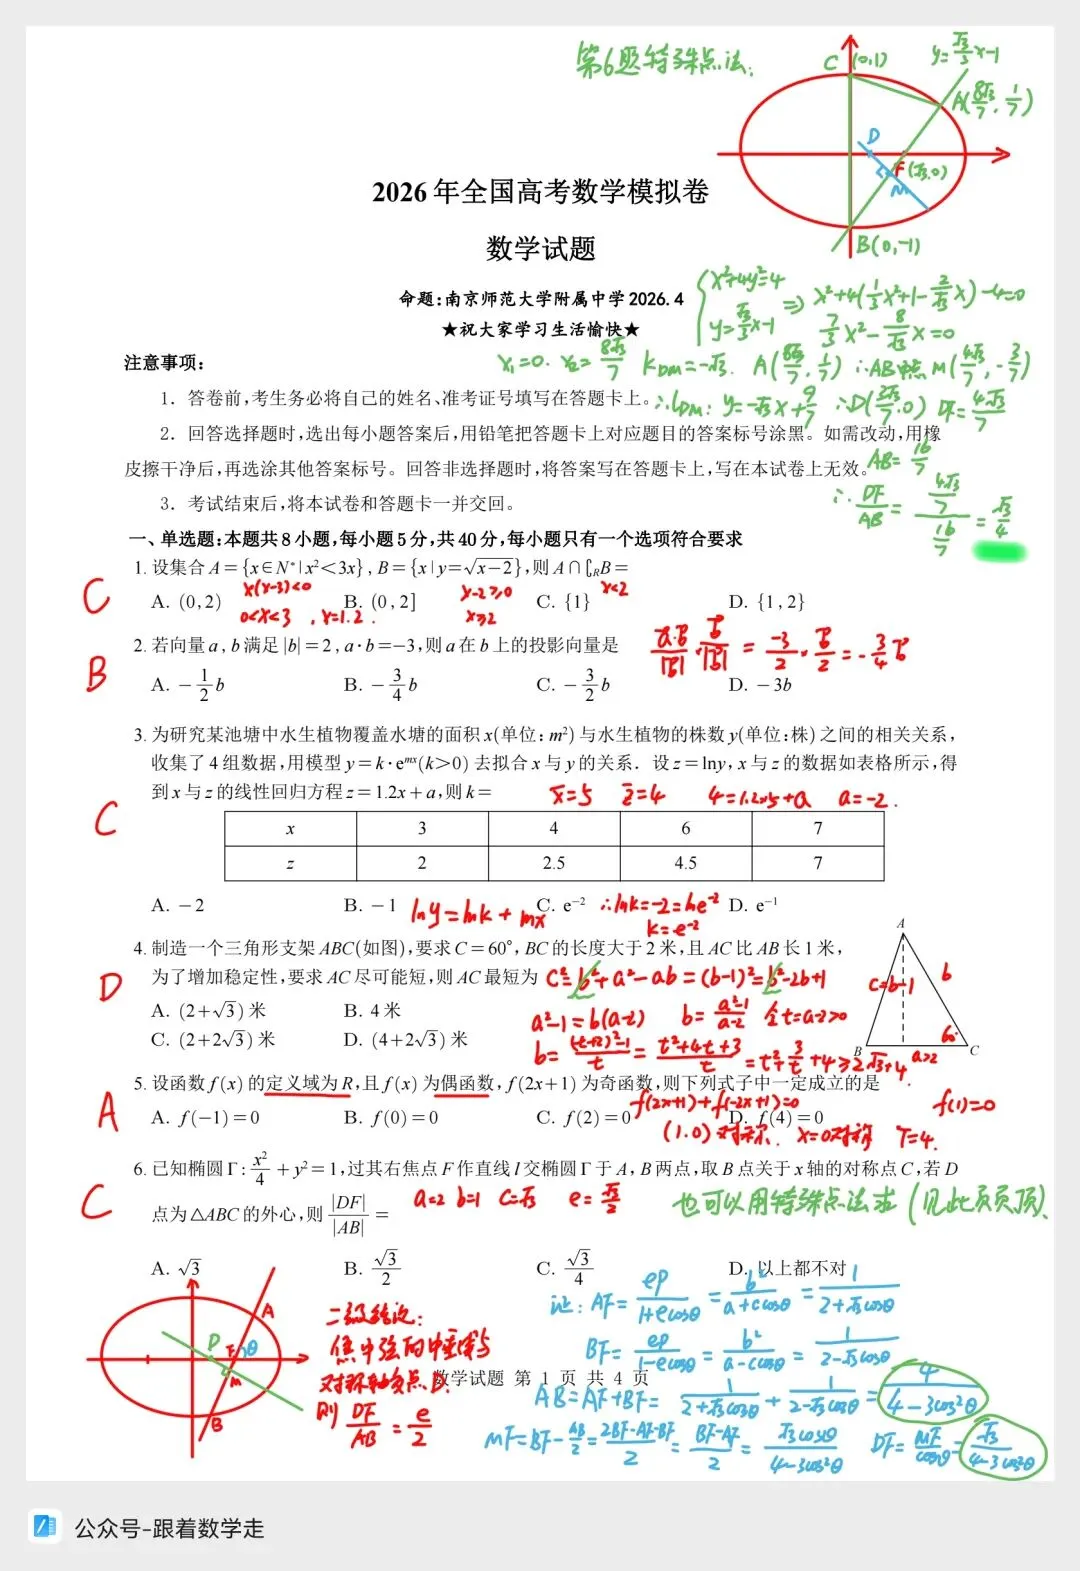 第6题特殊点法:
C (0,1)
y=√3/3x-1
A(8√3/7, 1/7)
D
F(√3,0)
M
B(0,-1)
2026年全国高考数学模拟卷
数学试题
命题:南京师范大学附属中学2026.4
★祝大家学习生活愉快★
{x²+4y²=4
y=√3/3x-1
⇒ x²+4(1/3x²+1-2/√3x)-4=0
7/3x²-8/√3x=0
x₁=0. x₂=8√3/7 k_DM=-√3. A(8√3/7, 1/7) ∴AB中点M(4√3/7, -3/7)
∴l_DM: y=-√3x+9/7 ∴D(3√3/7,0) DF=4√3/7
AB=16/7
∴DF/AB=(4√3/7)/(16/7)=√3/4
注意事项:
1. 答卷前,考生务必将自己的姓名、准考证号填写在答题卡上。
2. 回答选择题时,选出每小题答案后,用铅笔把答题卡上对应题目的答案标号涂黑。如需改动,用橡
皮擦干净后,再选涂其他答案标号。回答非选择题时,将答案写在答题卡上,写在本试卷上无效。
3. 考试结束后,将本试卷和答题卡一并交回。
一、单选题:本题共8小题,每小题5分,共40分,每小题只有一个选项符合要求
C
1. 设集合A={x∈N*|x²<3x}, B={x|y=√(x-2)},则A∩∁RB=
A. (0,2) B. (0,2] C. {1} D. {1,2}
x(x-3)<0 x-2≥0 x<2
0<x<3, x=1.2. x≥2
B
2. 若向量a, b满足|b|=2, a·b=-3,则a在b上的投影向量是
a·b/|b|·b/|b|=-3/2·b/2=-3/4b
A. -1/2b B. -3/4b C. -3/2b D. -3b
3. 为研究某池塘中水生植物覆盖水塘的面积x(单位:m²)与水生植物的株数y(单位:株)之间的相关关系,
收集了4组数据,用模型y=k·e^mx(k>0)去拟合x与y的关系. 设z=lny, x与z的数据如表格所示,得
到x与z的线性回归方程z=1.2x+a,则k=
x̄=5 z̄=4 4=1.2×5+a a=-2.
C
x 3 4 6 7
z 2 2.5 4.5 7
A. -2 B. -1 C. e⁻² D. e⁻¹
lny=lnk+mx ∴lnk=-2=lne⁻²
k=e⁻²
4. 制造一个三角形支架ABC(如图),要求C=60°, BC的长度大于2米,且AC比AB长1米,
为了增加稳定性,要求AC尽可能短,则AC最短为
D
c²=b²+a²-ab=(b-1)²=b²-2b+1
A. (2+√3)米 B. 4米
C. (2+2√3)米 D. (4+2√3)米
a²-1=b(a-2) b=a²-1/a-2 令t=a-2>0
b=(t+2)²-1/t=t²+4t+3/t=t+3/t+4≥2√3+4.
A
c=b-1 b
60°
B a>2 C
5. 设函数f(x)的定义域为R,且f(x)为偶函数, f(2x+1)为奇函数,则下列式子中一定成立的是
A
A. f(-1)=0 B. f(0)=0 C. f(2)=0 D. f(4)=0
f(2x+1)+f(-2x+1)=0 f(1)=0
(1.0)对称. x=0对称 T=4.
6. 已知椭圆Γ: x²/4+y²=1,过其右焦点F作直线l交椭圆Γ于A, B两点,取B点关于x轴的对称点C,若D
点为△ABC的外心,则|DF|/|AB|=
C
a=2 b=1 c=√3 e=√3/2
也可以用特殊点法求(见此页页顶)
A. √3 B. √3/2 C. √3/4 D. 以上都不对
A
D F θ
M
B
二级结论:
焦点弦的中垂线与
对称轴交点D.
则DF/AB=e/2
证: AF=ep/1+ecosθ=b²/a+ccosθ=1/2+√3cosθ
BF=ep/1-ecosθ=b²/a-ccosθ=1/2-√3cosθ
数学试题 第 1 页 共 4 页
AB=AF+BF=1/2+√3cosθ+1/2-√3cosθ=4/4-3cos²θ
MF=BF-AB/2=2BF-AF-BF/2=BF-AF/2=√3cosθ/4-3cos²θ DF=MF/cosθ=√3/4-3cos²θ
公众号-跟着数学走